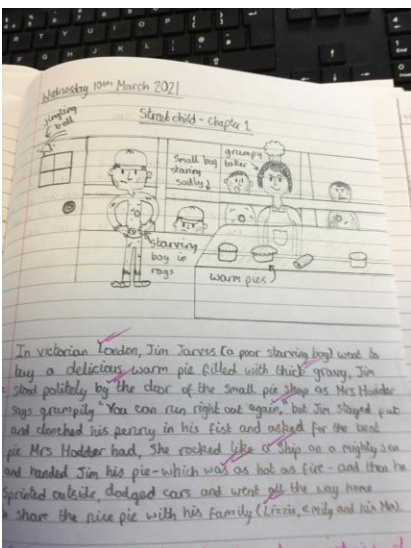 Wednesday 10th March 2021
Street child - Chapter 1
jingling
bell
Small boy
staring
sadly
grumpy
baker
starving
boy in
rags
warm pies
In victorian London, Jim Jarvis (a poor starving boy) went to
buy a delicious warm pie filled with thick gravy, Jim
stood politely by the door of the small pie shop as Mrs Hodder
says grumpily "You can run right out again," but Jim stayed put
and clenched his penny in his fist and asked for the best
pie Mrs Hodder had, She rocked like a ship on a mighty sea
and handed Jim his pie-which was as hot as fire - and then he
sprinted outside, dodged cars and went all the way home
share the nice pie with his family (Lizzie, Emily and his Ma).